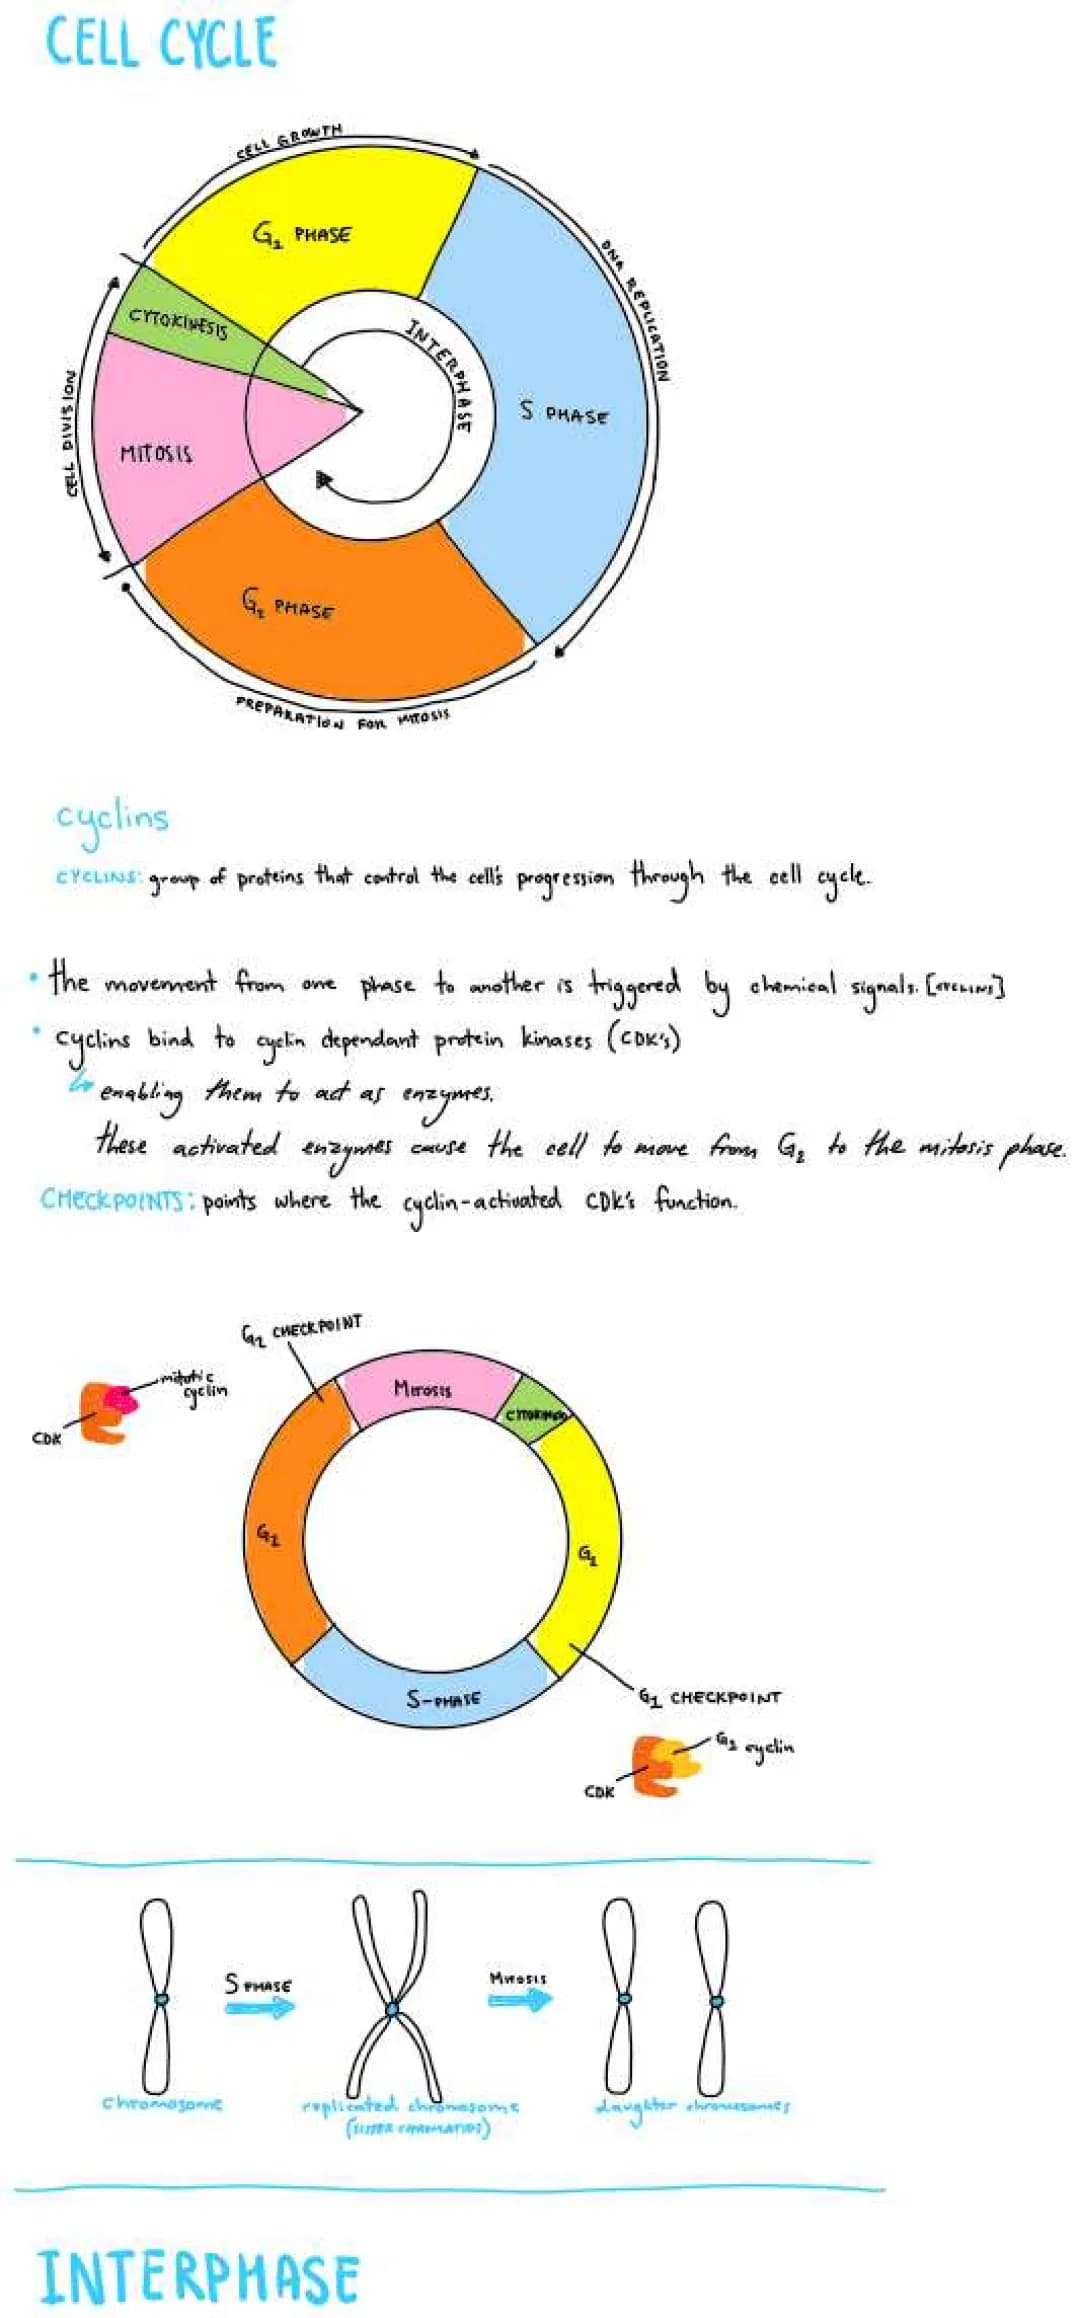 CELL CYCLE
CELL GROWTH
G₁ PHASE
DNA REPLICATION
CYTOKINESIS
INTERPHASE
S PHASE
CELL DIVISION
MITOSIS
G₂ PHASE
PREPARATION FOR MITOSIS
cyclins
CYCLINS: group of proteins that control the cell's progression through the cell cycle.
• the movement from one phase to another is triggered by chemical signals. [CYCLINS]
• cyclins bind to cyclin dependant protein kinases (CDK's)
↳ enabling them to act as enzymes.
these activated enzymes cause the cell to move from G₂ to the mitosis phase.
CHECKPOINTS: points where the cyclin-activated CDK's function.
G₂ CHECKPOINT
mitotic
cyclin
CDK
MITOSIS
CYTOKINESIS
G₂
G₁
S-PHASE
G₁ CHECKPOINT
G₁ cyclin
CDK
S PHASE
MITOSIS
chromosome
replicated chromosome
(SISTER CHROMATIDS)
daughter chromosomes
INTERPHASE